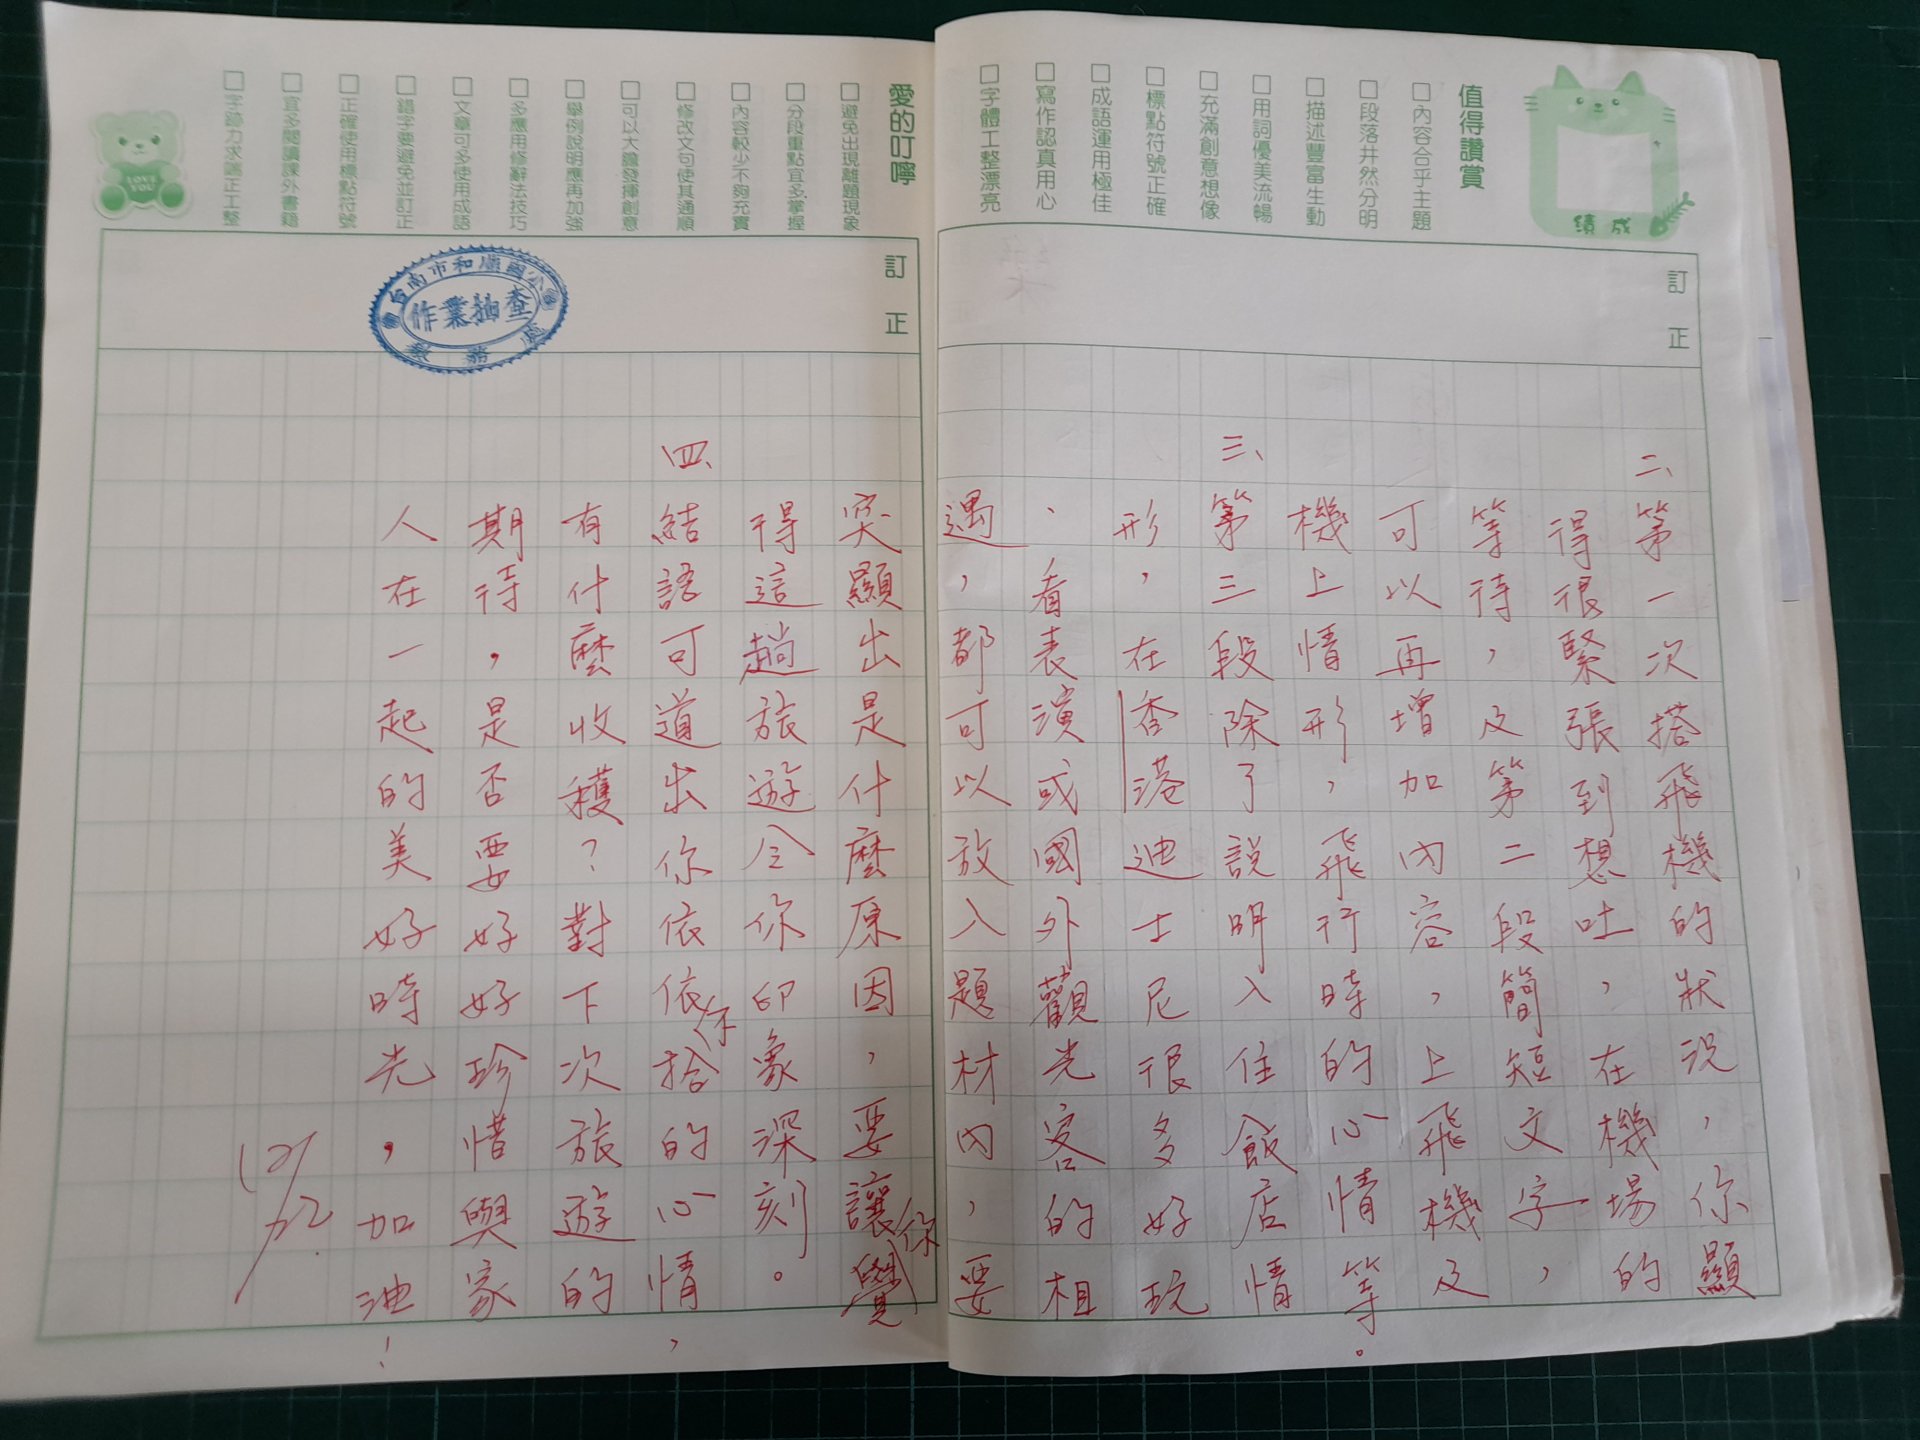 值得讚賞
□內容合乎主題
□段落井然分明
□描述豐富生動
□用詞優美流暢
□充滿創意想像
□標點符號正確
□成語運用極佳
□寫作認真用心
□字體工整漂亮
成績
訂正
二、第一次搭飛機的狀況，你顯
得很緊張到想吐，在機場的
等待，及第二段簡短文字，
可以再增加內容，上飛機及
機上情形，飛行時的心情等。
三、第三段除了說明入住飯店情
形，在香港迪士尼很多好玩
、看表演或國外觀光客的相
遇，都可以放入題材內，要
愛的叮嚀
□避免出現離題現象
□分段重點宜多掌握
□內容較少不夠充實
□修改文句使其通順
□可以大膽發揮創意
□舉例說明應再加強
□多應用修辭法技巧
□文章可多使用成語
□錯字要避免並訂正
□正確使用標點符號
□宜多閱讀課外書籍
□字跡力求端正工整
LOVE YOU
訂正
台南市和順國小
作業抽查
教務處
突顯出是什麼原因，要讓你覺
得這趟旅遊令你印象深刻。
四、結語可道出你依依不捨的心情，
有什麼收穫？對下次旅遊的
期待，是否要好好珍惜與家
人在一起的美好時光，加油！
12/12